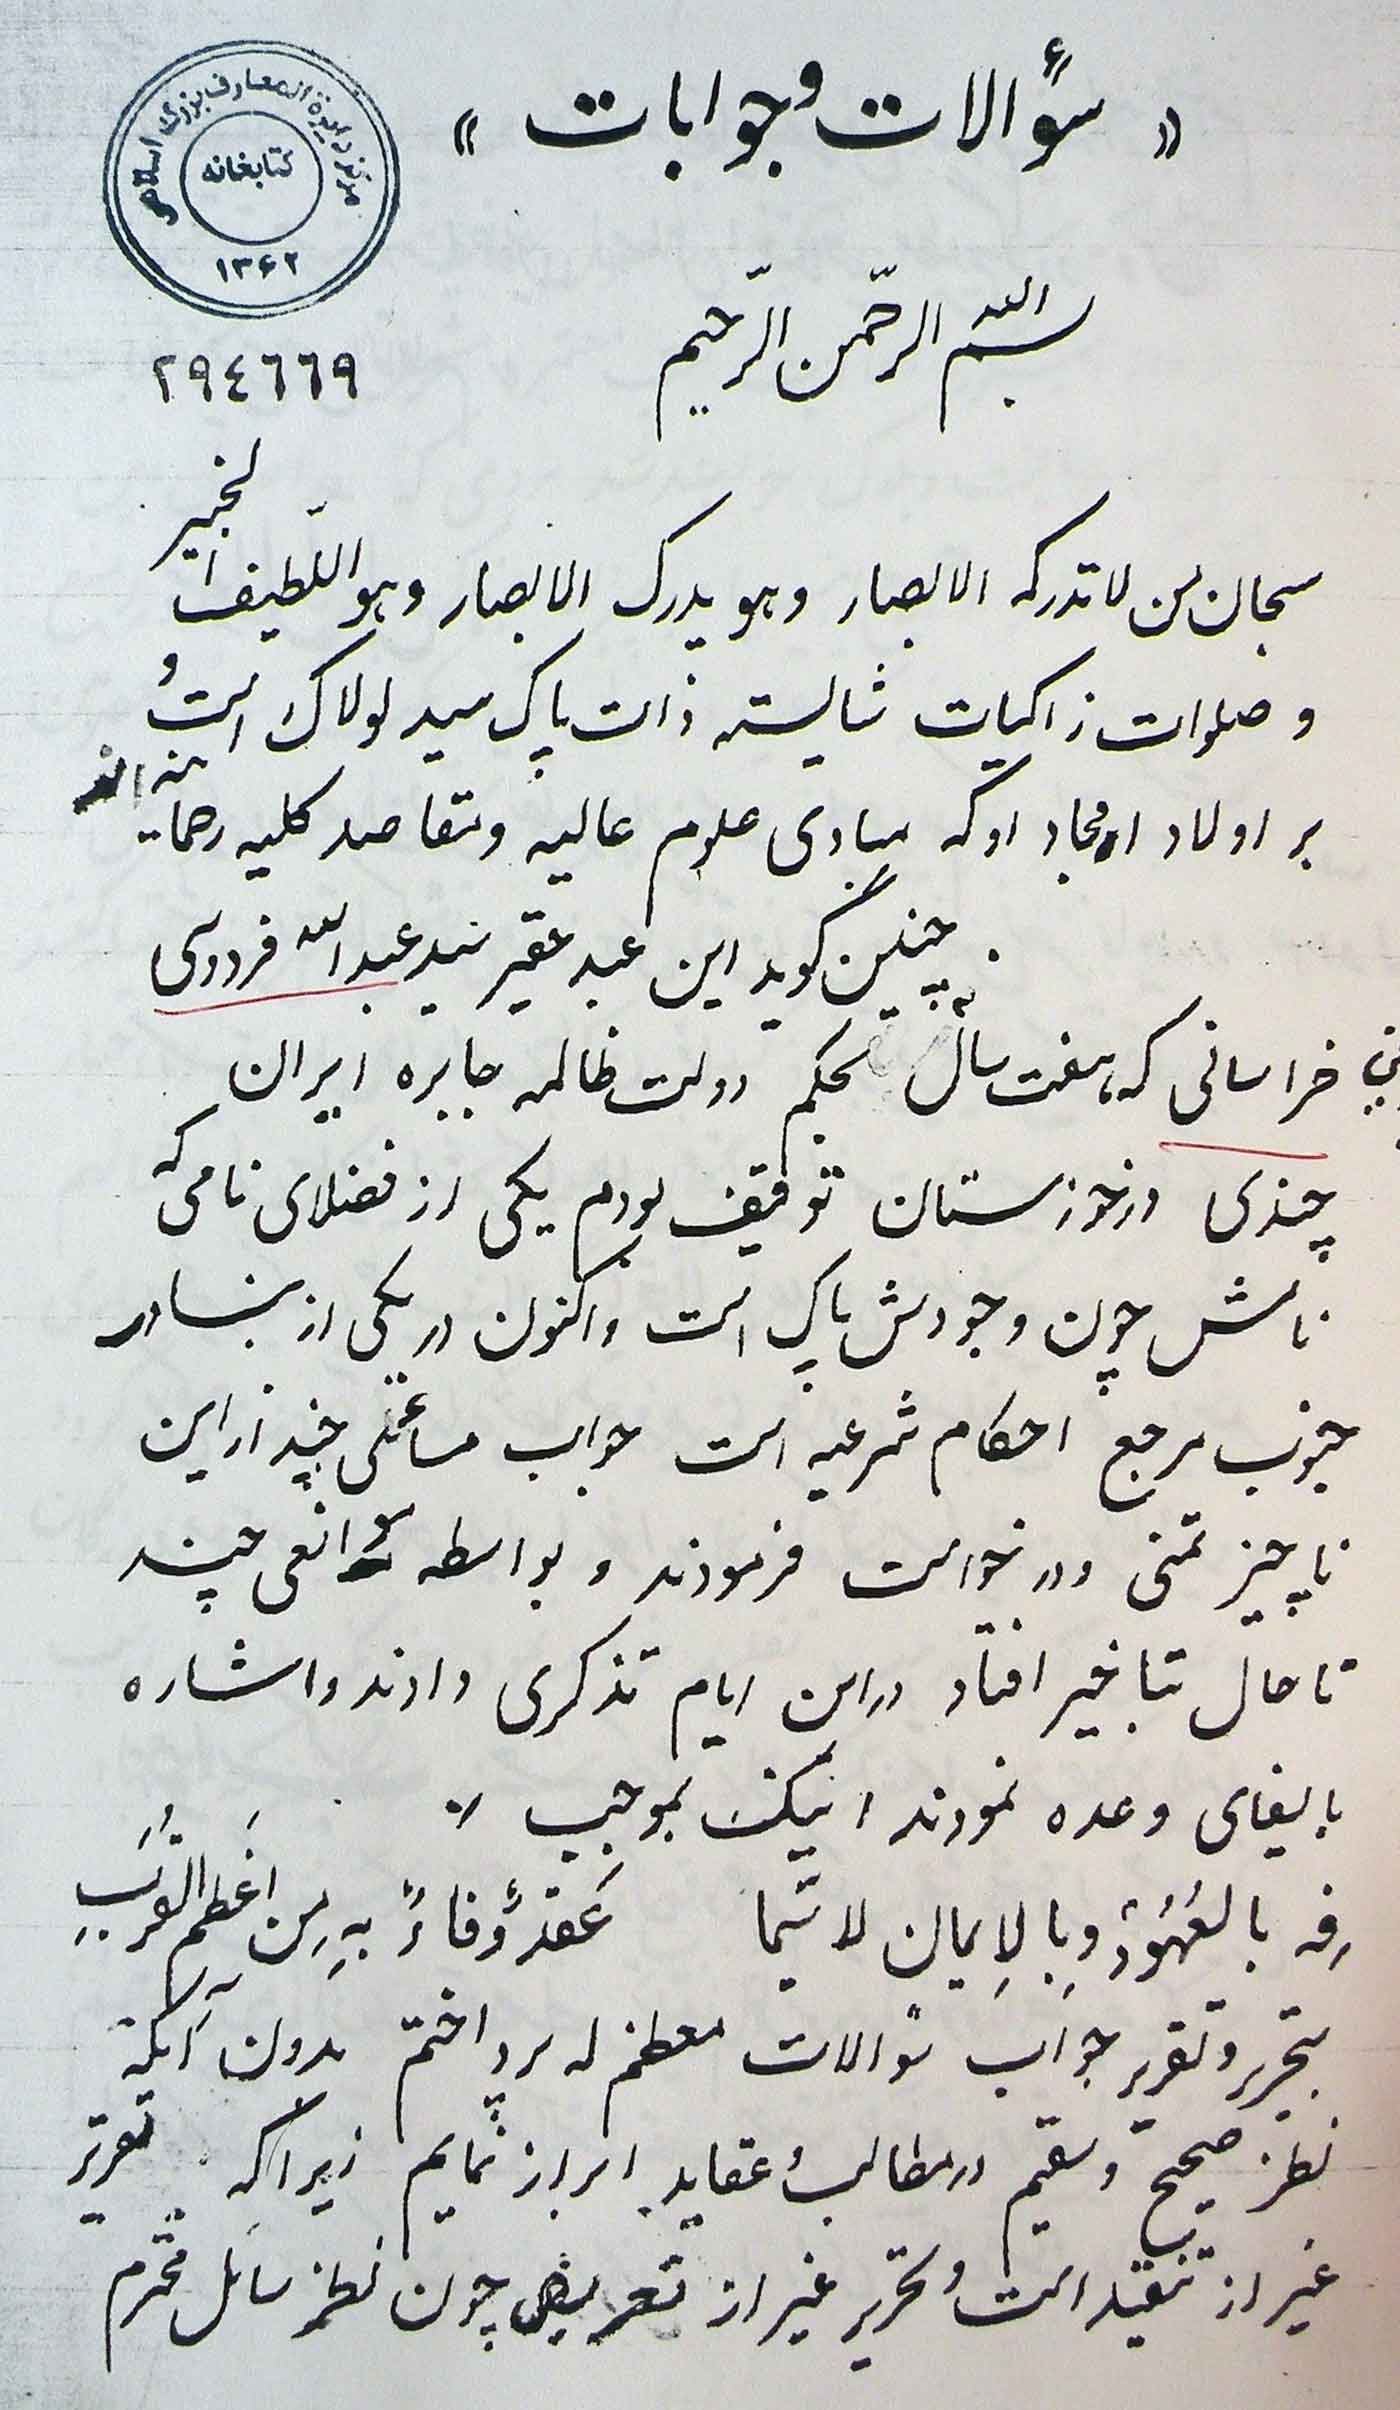 « سؤالات و جوابات »
مرکز دایرة المعارف بزرگ اسلامی
کتابخانه
۱۳۶۲
۲۹٤٦٦۹
بسم الله الرّحمن الرّحیم
سبحان من لا تدرکه الابصار وهو یدرک الابصار وهو اللّطیف الخبیر
و صلوات زاکیات شایسته ذات پاک سید لولاک است و
بر اولاد امجاد او که مبادی علوم عالیه و مقاصد کلیه رحمانیه اند
چنین گوید این عبد حقیر سید عبدالله فردوسی
خراسانی که هفت سال بحکم دولت ظالمه جابره ایران
چندی در خوزستان توقیف بودم یکی از فضلای نامی که
نامش چون وجودش پاک است و اکنون در یکی از بنادر
جنوب مرجع احکام شرعیه است جواب مسائلی چند از این
ناچیز تمنی و درخواست فرمودند و بواسطه موانعی چند
تا حال بتاخیر افتاد در این ایام تذکری دادند و اشاره
بایفای وعده نمودند اینک بموجب
فِه بالعُهُودِ وبِالاِیمان لا سیّما عَقدٌ وَفاءٌ بِهِ مِن اَعظَمِ القُرَبِ
بتحریر و تقریر جواب سؤالات معظم له پرداختم بدون آنکه
نظر صحیح و سقیم در مطالب و عقاید ابراز نمایم زیرا که تقریر
غیر از تنقید است و تحریر غیر از تعریض چون نظر سائل محترم